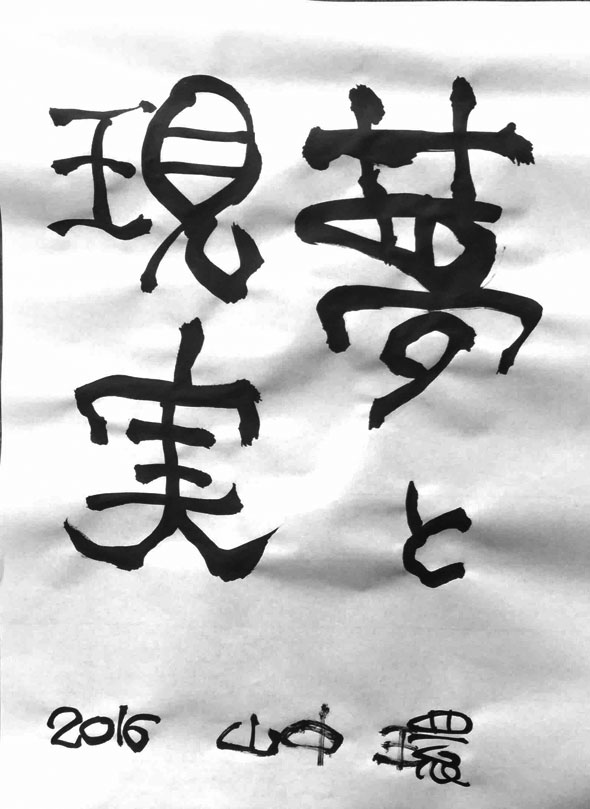 夢と
現実
2016 山中